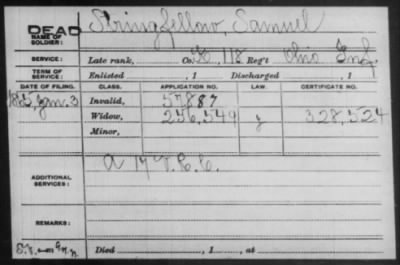 DEAD
NAME OF SOLDIER: Stringfellow, Samuel
SERVICE: Late rank, Co. 118 Reg't Ohio Inf.
TERM OF SERVICE: Enlisted , 1 Discharged , 1
DATE OF FILING. CLASS. APPLICATION NO. LAW. CERTIFICATE NO.
Jan. 3 Invalid, 57887
Widow, 256,549 328,524
Minor,
ADDITIONAL SERVICES: A 17 V.R.C.
REMARKS:
Died , 1 , at